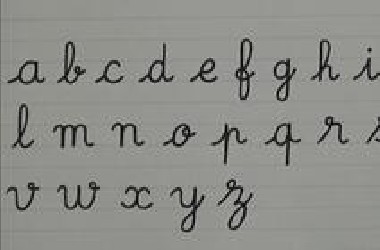 a b c d e f g h i
l m n o p q r s
v w x y z